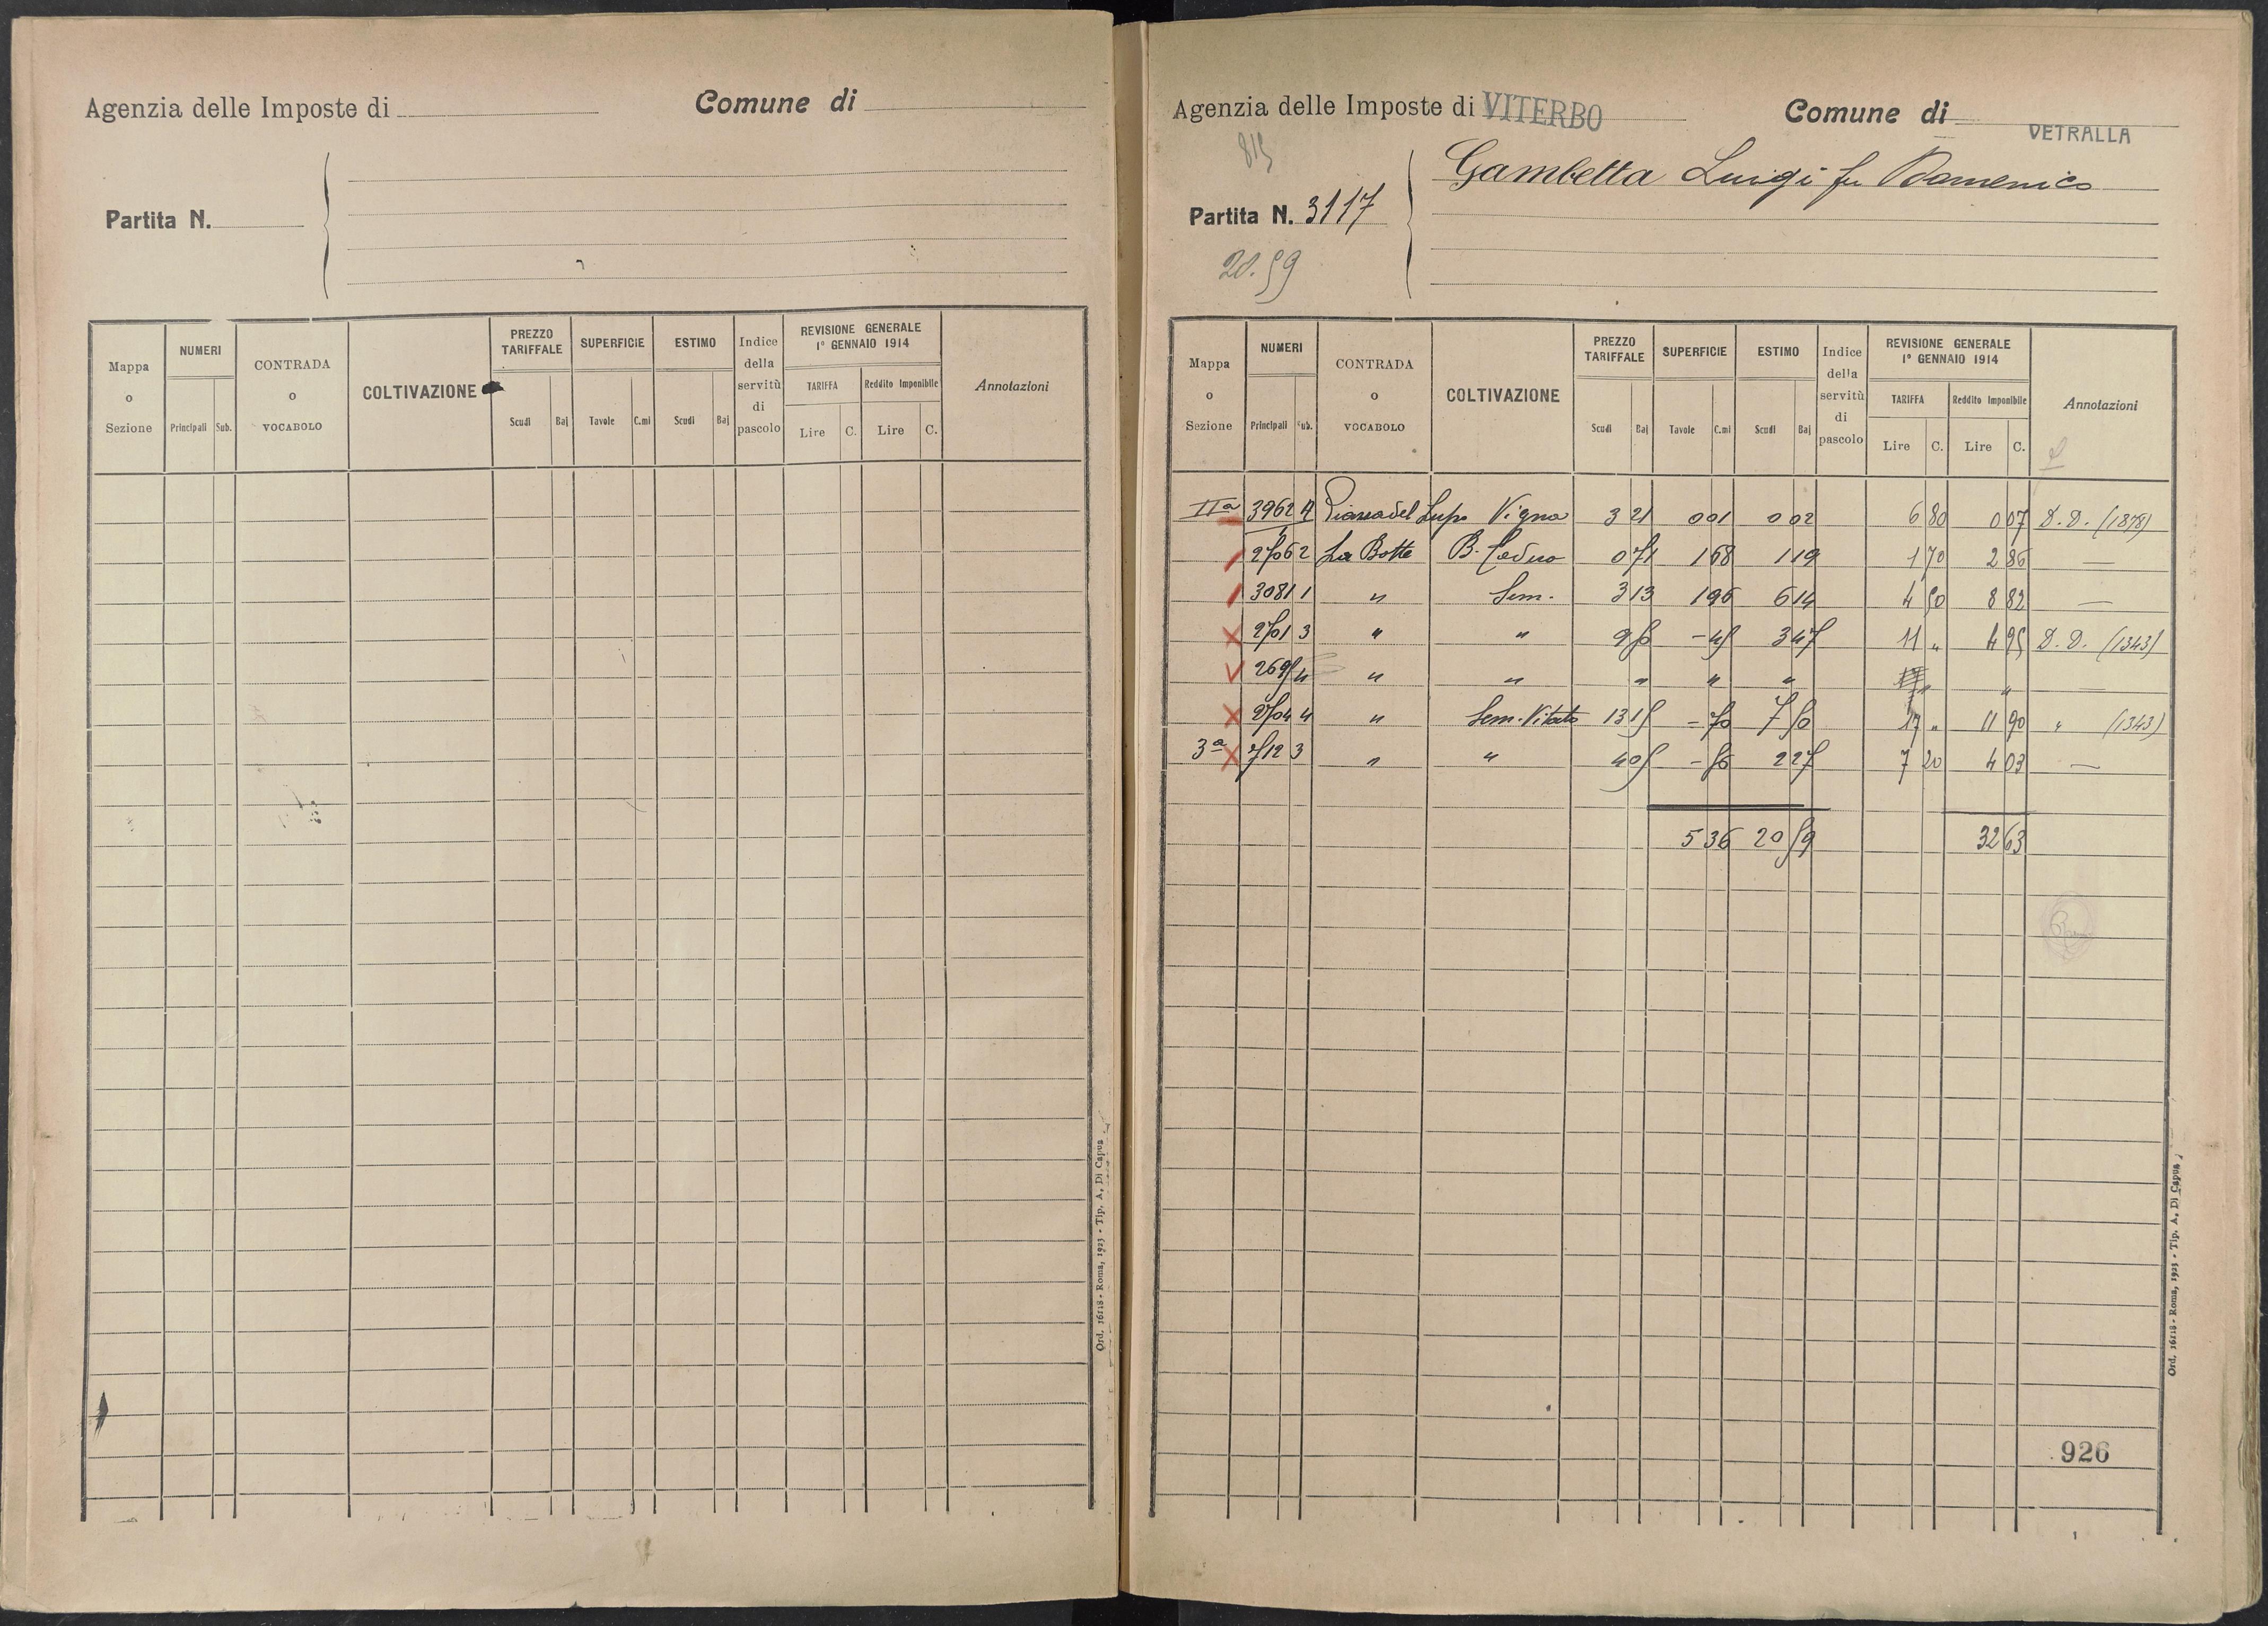 Agenzia delle Imposte di
Comune di
Partita N.
Mappa o Sezione
NUMERI
Principali Sub.
CONTRADA o VOCABOLO
COLTIVAZIONE
PREZZO TARIFFALE
Scudi Baj
SUPERFICIE
Tavole C.mi
ESTIMO
Scudi Baj
Indice della servitù di pascolo
REVISIONE GENERALE
1° GENNAIO 1914
TARIFFA
Lire C.
Reddito Imponibile
Lire C.
Annotazioni
Ord. 16118 - Roma, 1923 - Tip. A. Di Capua
Agenzia delle Imposte di VITERBO
Comune di VETRALLA
815
Gambetta Luigi fu Domenico
Partita N. 3117
20.59
Mappa o Sezione
NUMERI
Principali Sub.
CONTRADA o VOCABOLO
COLTIVAZIONE
PREZZO TARIFFALE
Scudi Baj
SUPERFICIE
Tavole C.mi
ESTIMO
Scudi Baj
Indice della servitù di pascolo
REVISIONE GENERALE
1° GENNAIO 1914
TARIFFA
Lire C.
Reddito Imponibile
Lire C.
Annotazioni
IIa 3962 del Lupo Vigna 3 21 0 01 0 02 6 80 0 07 D.D. (1878)
2706 2 La Botte B. Ceduo 0 71 1 68 1 19 1 70 2 86 —
3081 1 " Sem. 3 13 1 96 6 14 4 50 8 82 —
2701 3 " " - 45 3 47 11 " 4 95 D.D. (1343)
2695 4 " " " " " " " —
2704 4 " Sem. Vitato 13 15 - 70 7 50 17 " 11 90 " (1343)
3a 712 3 " " 4 05 - 56 2 27 7 20 4 03 —
5 36 20 59 32 63
926
Ord. 16118 - Roma, 1923 - Tip. A. Di Capua